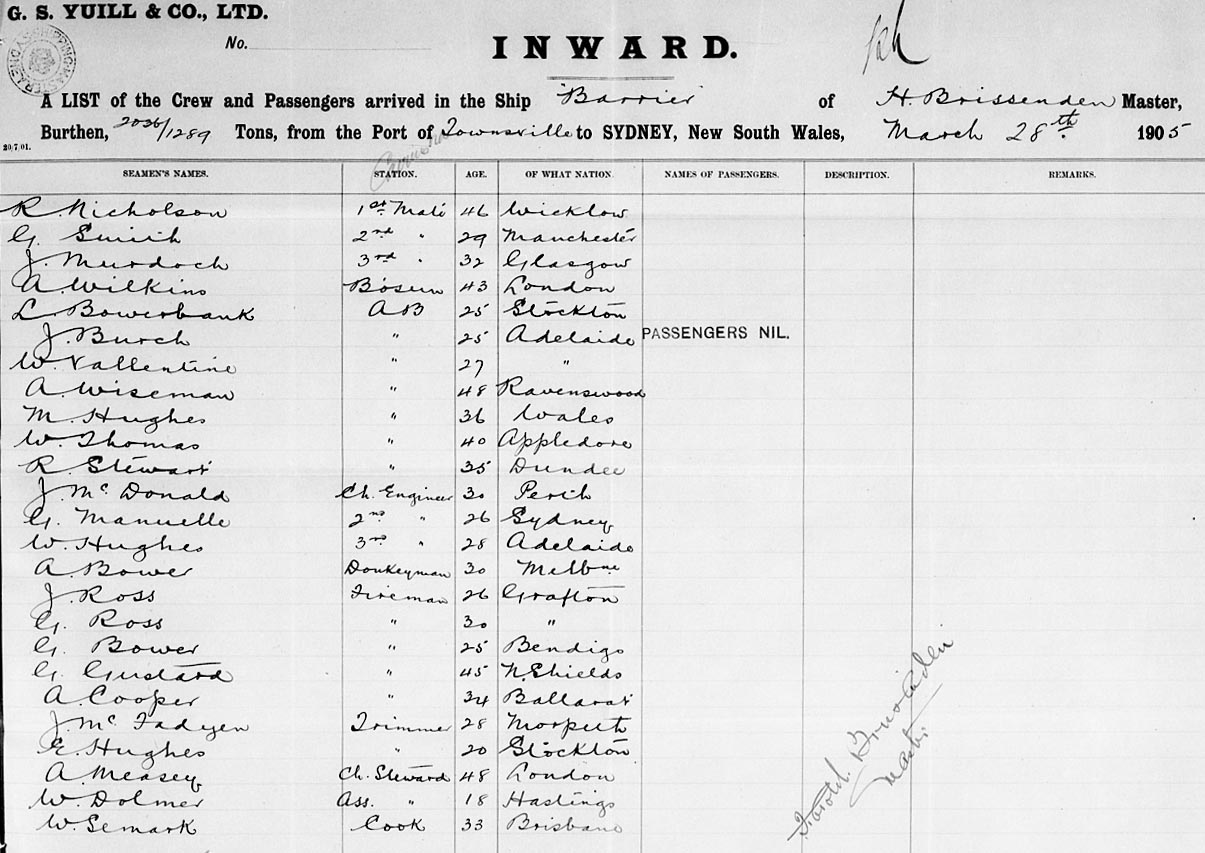 G. S. YUILL & CO., LTD.
No.
INWARD.
A LIST of the Crew and Passengers arrived in the Ship Barrier of H. Brissenden Master,
Burthen, 2036/1289 Tons, from the Port of Townsville to SYDNEY, New South Wales, March 28th 1905
20/7/01.
SEAMEN'S NAMES. STATION. AGE. OF WHAT NATION. NAMES OF PASSENGERS. DESCRIPTION. REMARKS.
R. Nicholson 1st Mate 46 Wicklow
G. Smith 2nd " 29 Manchester
J. Murdoch 3rd " 32 Glasgow
A. Wilkins Bosun 43 London
L. Bowerbank AB 25 Stockton
J. Burch " 25 Adelaide PASSENGERS NIL.
W. Vallentine " 27 "
A. Wiseman " 48 Ravenswood
M. Hughes " 36 Wales
W. Thomas " 40 Appledore
R. Stewart " 35 Dundee
J. McDonald Ch. Engineer 30 Perth
G. Manuelle 2nd " 26 Sydney
W. Hughes 3rd " 28 Adelaide
A. Bower Donkeyman 30 Melbne
J. Ross Fireman 26 Grafton
G. Ross " 30 "
G. Bower " 25 Bendigo
G. Gustard " 45 N. Shields
A. Cooper " 34 Ballarat
J. McFadyen Trimmer 28 Morpeth
E. Hughes " 20 Stockton
A. Measey Ch. Steward 48 London
W. Dolmer Ass. " 18 Hastings
W. Semark Cook 33 Brisbane
Harold Brissenden
Master